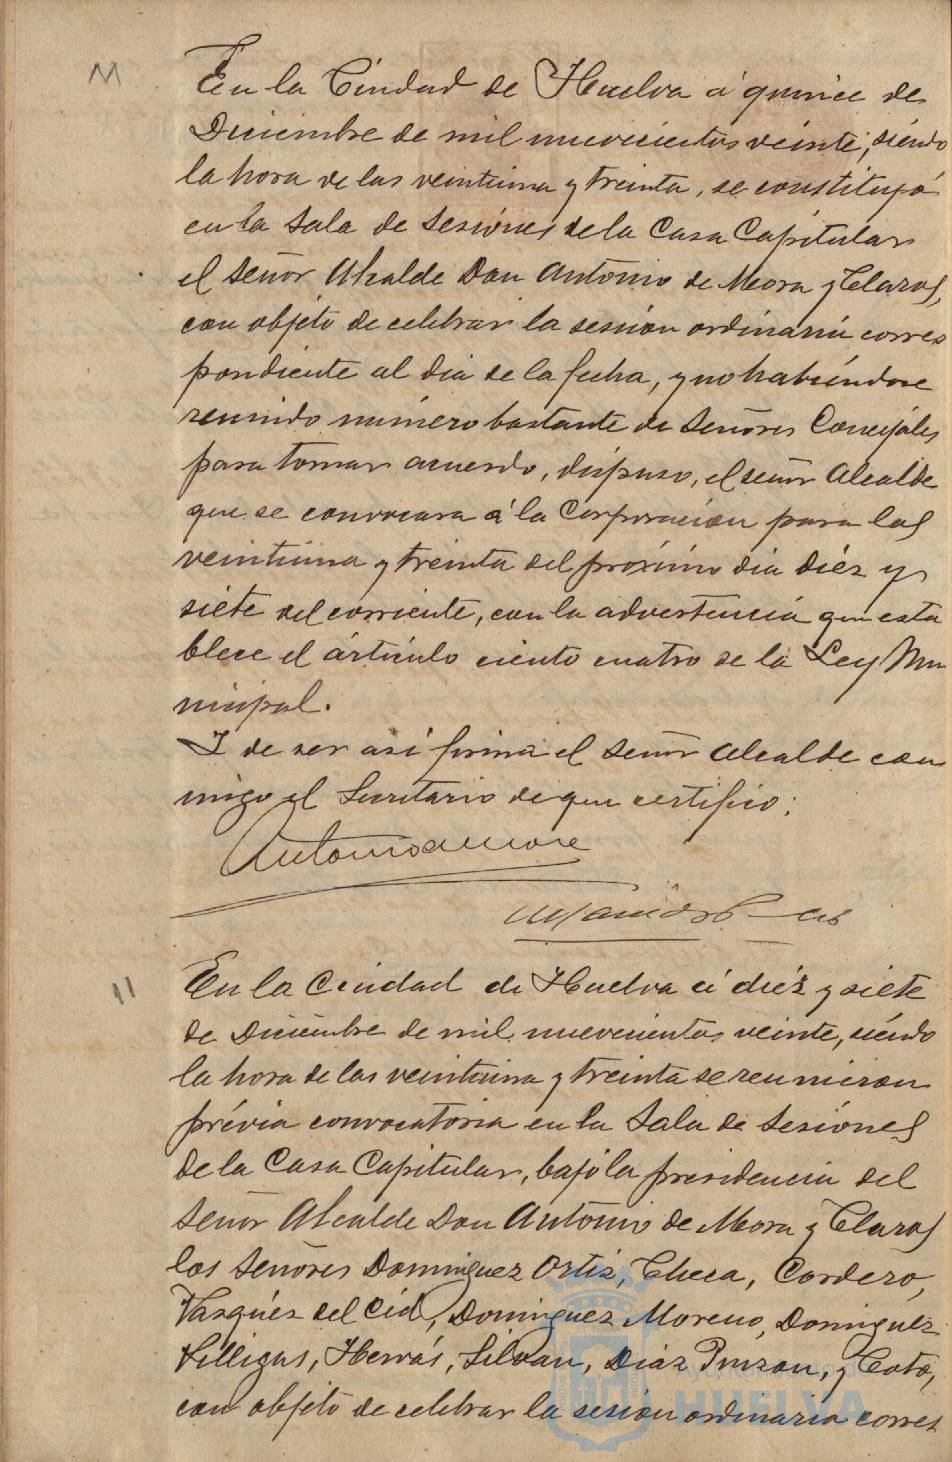 En la Ciudad de Huelva á quince de
Diciembre de mil nuevecientos veinte, siendo
la hora de las veintiuna y treinta, se constituyó
en la Sala de Sesiones de la Casa Capitular
el Señor Alcalde Don Antonio de Mora y Claros,
con objeto de celebrar la sesion ordinaria corres
pondiente al dia de la fecha, y no habiéndose
reunido número bastante de Señores Concejales
para tomar acuerdo, dispuso, el señor Alcalde
que se convocara á la Corporación para las
veintiuna y treinta del próximo dia diéz y
siete del corriente, con la advertencia que esta
blece el artículo ciento cuatro de la Ley Mu
nicipal.
Y de ser así firma el Señor Alcalde con
migo el Secretario de que certifico:
Antonio de Mora
11
En la Ciudad de Huelva á diéz y siete
de Diciembre de mil nuevecientos veinte, siendo
la hora de las veintiuna y treinta se reunieron
prévia convocatoria en la Sala de Sesiones
de la Casa Capitular, bajo la presidencia del
Señor Alcalde Don Antonio de Mora y Claros
los Señores Dominguez Ortiz, Checa, Cordero,
Vazquez del Cid, Dominguez Moreno, Dominguez
Villigas, Hervás, Silvan, Diaz Pinzon, y Coto,
con objeto de celebrar la sesion ordinaria corres
Ayuntamiento de
HUELVA